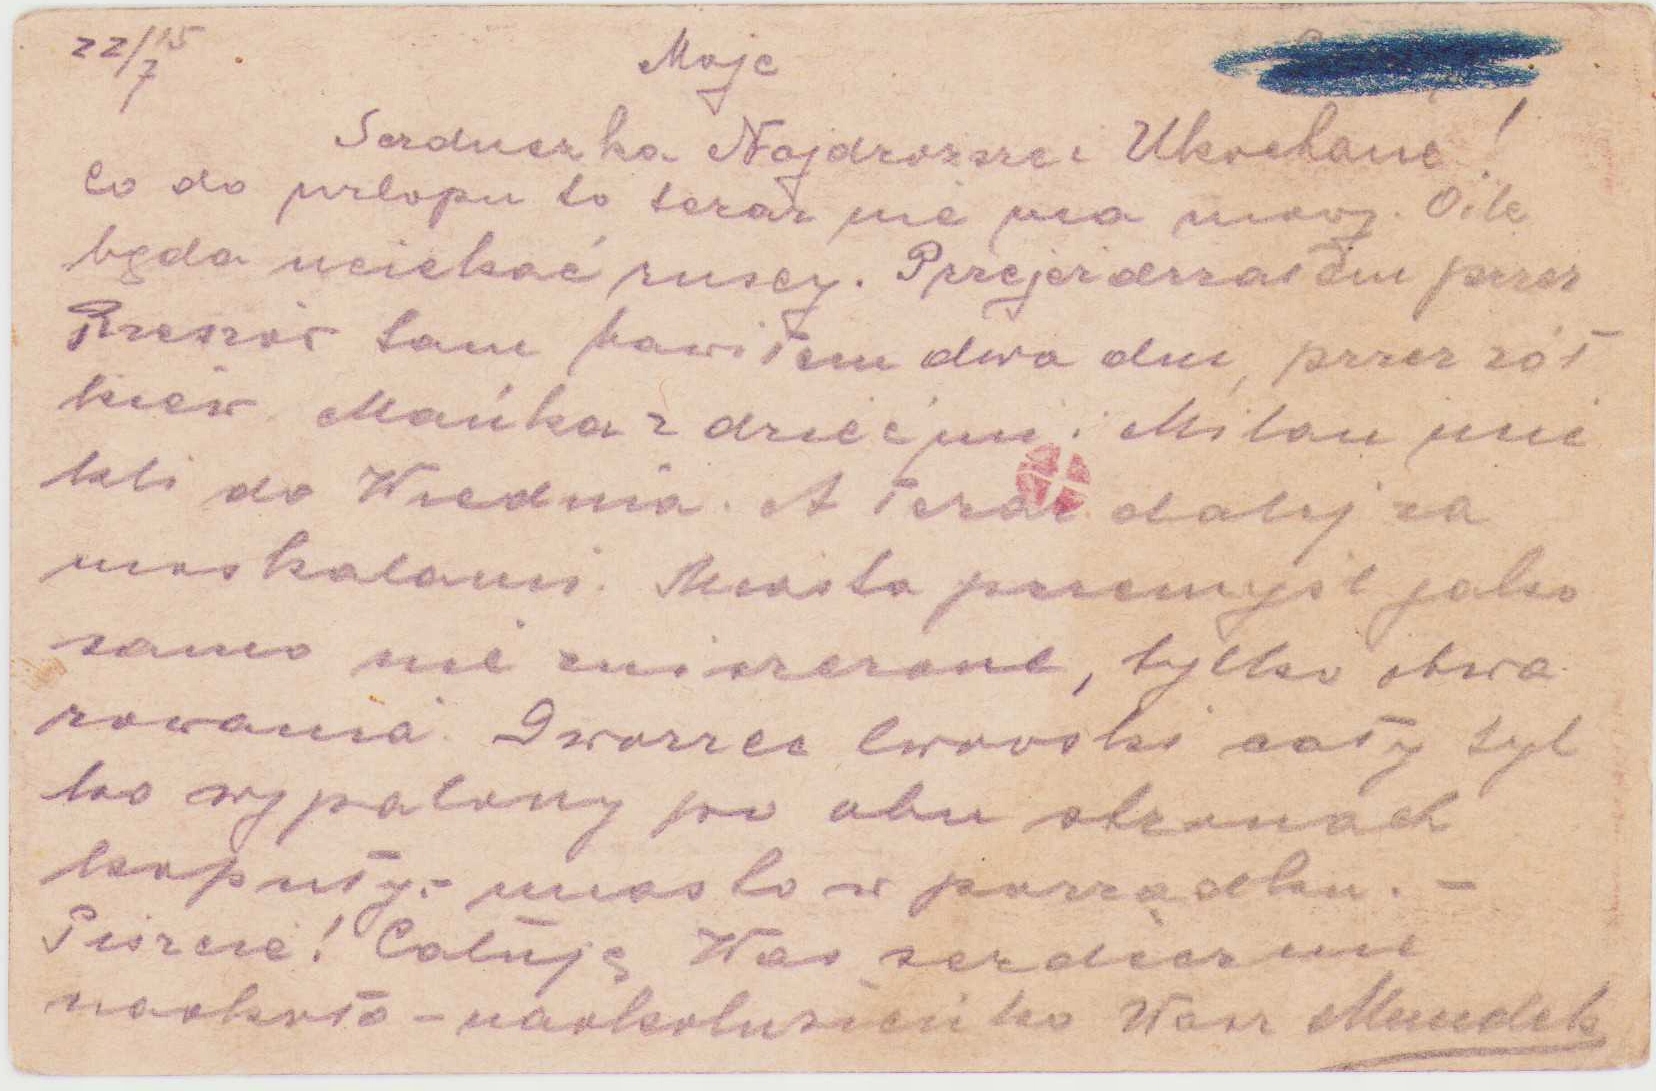 22/7 15
Moje
Serduszka Najdroższe i Ukochane!
Co do urlopu to teraz nie ma mowy. O ile
będą uciekać ruscy. Przejeżdżałem przez
Rzeszów tam bawiłem dwa dni, przez Żół
kiew. Mańka z dziećmi i Milan ucie
kli do Wiednia. A teraz dalej za
moskalami. Miasto Przemyśl jako
samo nie zniszczone, tylko obwa
rowania. Dworzec lwowski cały tyl
ko wypalony po obu stronach
kopuły - miasto w porządku. -
Piszcie! Całuję Was serdecznie
naokoło - naokolusieńko Wasz Mundek